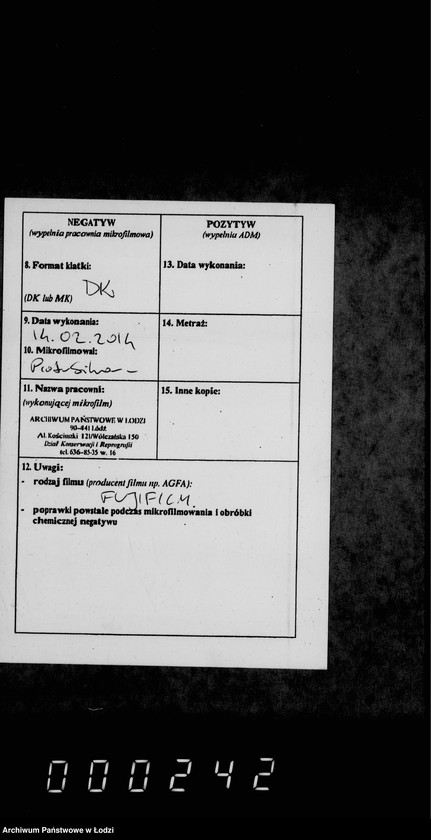 NEGATYW
(wypełnia pracownia mikrofilmowa)
8. Format klatki:
(DK lub MK) DK
9. Data wykonania:
14.02.2014
10. Mikrofilmował:
11. Nazwa pracowni:
(wykonującej mikrofilm)
ARCHIWUM PAŃSTWOWE W ŁODZI
90-441 Łódź
Al. Kościuszki 121/Wólczańska 150
Dział Konserwacji i Reprografii
tel. 636-85-35 w. 16
POZYTYW
(wypełnia ADM)
13. Data wykonania:
14. Metraż:
15. Inne kopie:
12. Uwagi:
- rodzaj filmu (producent filmu np. AGFA):
FUJIFILM
- poprawki powstałe podczas mikrofilmowania i obróbki
chemicznej negatywu
000242
Archiwum Państwowe w Łodzi